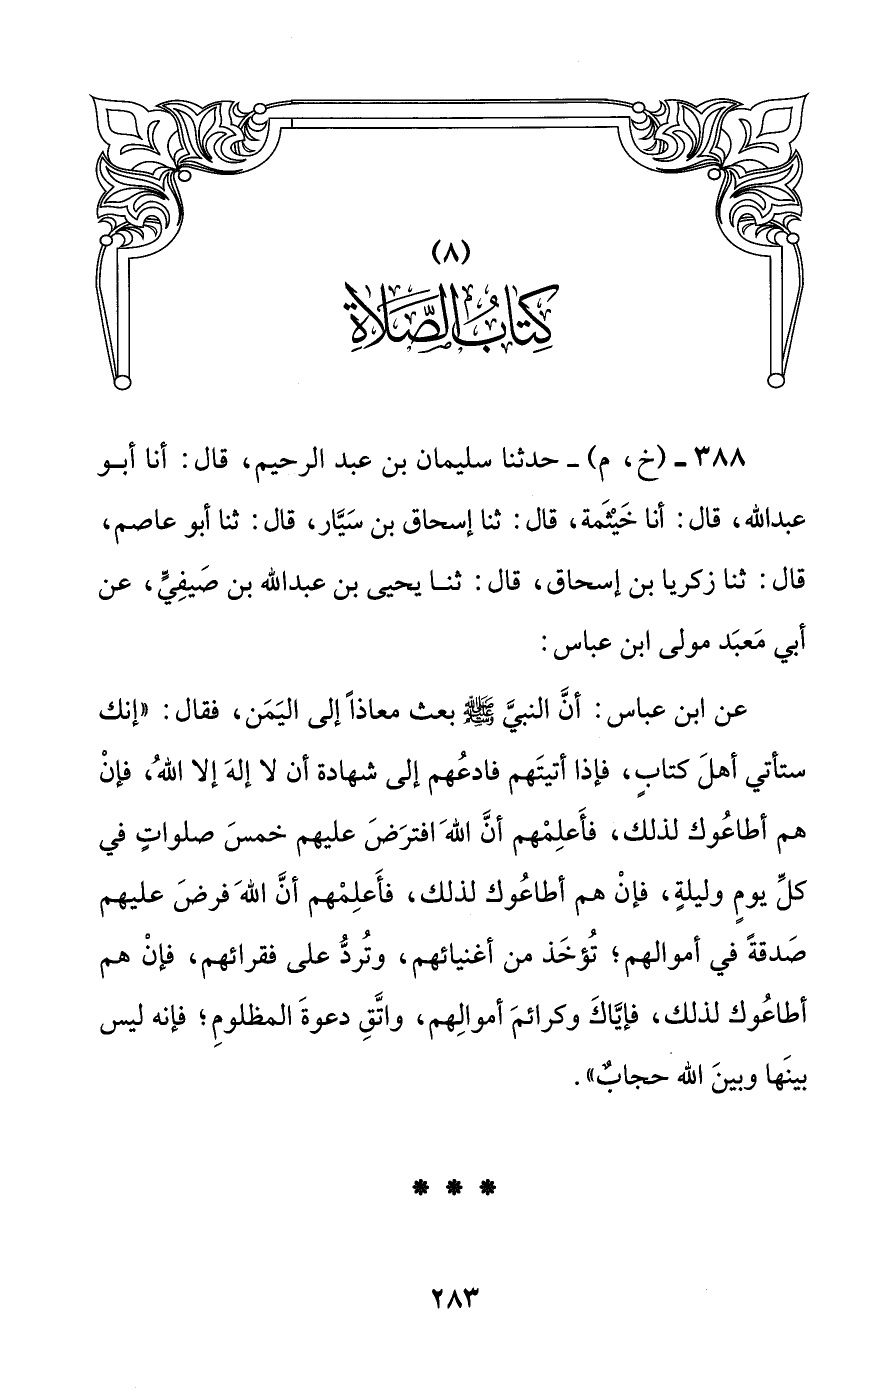 (٨)
كِتَابُ الصَّلَاةِ
٣٨٨ ـ (خ، م) ـ حدثنا سليمان بن عبد الرحيم، قال: أنا أبـو
عبدالله، قال: أنا خَيْثَمة، قال: ثنا إسحاق بن سَيَّار، قال: ثنا أبو عاصم،
قال: ثنا زكريا بن إسحاق، قال: ثنـا يحيى بن عبدالله بن صَيفِيٍّ، عن
أبي مَعبَد مولى ابن عباس:
عن ابن عباس: أنَّ النبيَّ ﷺ بعث معاذاً إلى اليَمَن، فقال: «إنك
ستأتي أهلَ كتابٍ، فإذا أتيتَهم فادعُهم إلى شهادة أن لا إلهَ إلا اللهُ، فإنْ
هم أطاعُوك لذلك، فأَعلِمْهم أنَّ اللهَ افترَضَ عليهم خمسَ صلواتٍ في
كلِّ يومٍ وليلةٍ، فإنْ هم أطاعُوك لذلك، فأَعلِمْهم أنَّ اللهَ فرضَ عليهم
صَدقةً في أموالهم؛ تُؤخَذ من أغنيائهم، وتُردُّ على فقرائهم، فإنْ هم
أطاعُوك لذلك، فإيَّاكَ وكرائمَ أموالِهم، واتَّقِ دعوةَ المظلومِ؛ فإنه ليس
بينَها وبينَ الله حجابٌ».
* * *
٢٨٣